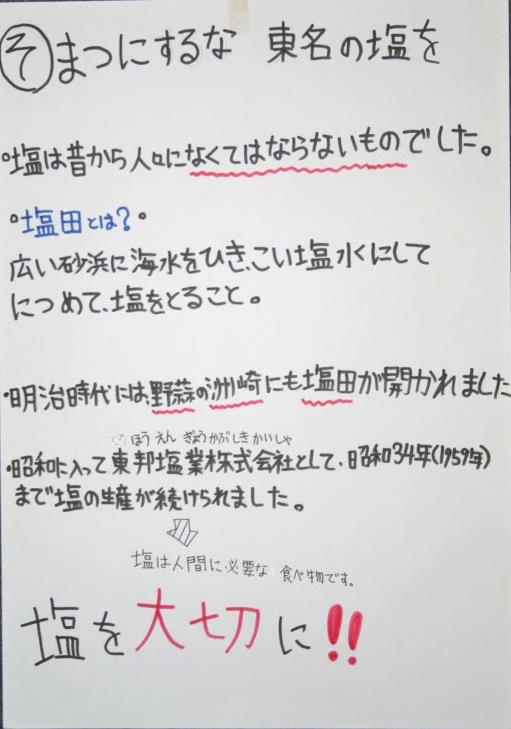 そまつにするな 東名の塩を
•塩は昔から人々になくてはならないものでした。
•塩田とは?•
広い砂浜に海水をひき、こい塩水にして
につめて、塩をとること。
•明治時代には、野蒜の洲崎にも塩田が開かれました
とうほうえんぎょうかぶしきかいしゃ
•昭和に入って東邦塩業株式会社として、昭和34年(1959年)
まで塩の生産が続けられました。
塩は人間に必要な 食べ物です。
塩を大切に!!